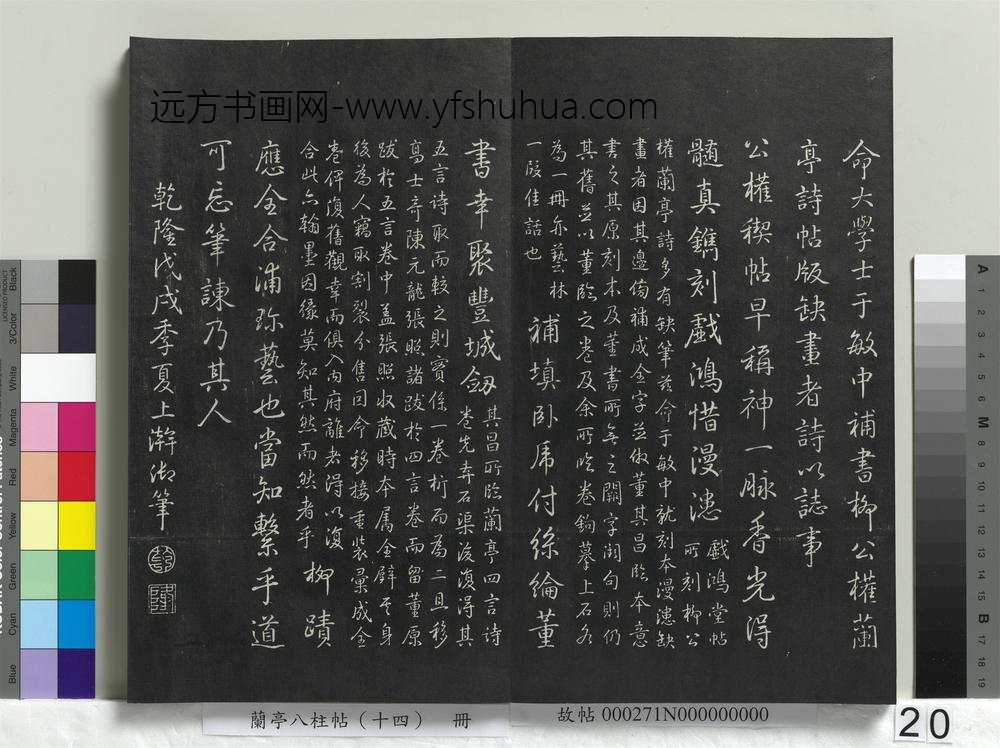 命大學士于敏中補書柳公權蘭
亭詩帖版缺畫者詩以誌事
公權稧帖早稱神一脉香光得
髓真鐫刻戲鴻惜漫漶
戲鴻堂帖
所刻柳公
權蘭亭詩多有缺筆茲命于敏中就刻本漫漶缺
畫者因其邊傍補成全字並倣董其昌臨本意
書之其原刻本及董書所無之闕字闕句則仍
其舊並以董臨之卷及余所臨卷鉤摹上石為
為一冊亦藝林
一段佳話也
補填卧虎付絲綸董
書幸聚豐城劒
其昌所臨蘭亭四言詩
卷先弆石渠後復得其
五言詩取而較之則實係一卷析而為二且移
高士奇陳元龍張照諸跋於四言卷而留董原
跋於五言卷中盖張照收藏時本属全璧至身
後為人竊取割裂分售因命移接重裝彙成全
卷俾復舊觀幸而俱入内府離者得以復
合此亦翰墨因緣莫知其然而然者乎
柳蹟
應全合浦珎藝也當知繫乎道
可忘筆諫乃其人
乾隆戊戌季夏上澣御筆
乾
隆
远方书画网-www.yfshuhua.com
蘭亭八柱帖（十四） 冊
故帖 000271N000000000
20
Black
3/Color
White
Magenta
Red
Yellow
Green
Cyan
Blue
A
1
2
3
4
5
6
M
8
9
10
11
12
13
14
15
B
17
18
19